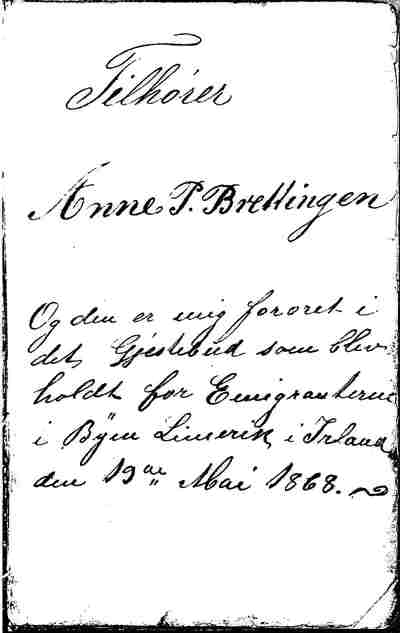 Tilhører
Anne P. Brettingen
Og den er mig foræret i
det Gjéstebud som blev
holdt for Emigranterne
i Byen Limerik i Irland
den 19de Mai 1868.